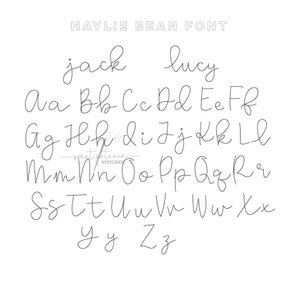 HAYLIE BEAN FONT
jack lucy
Aa Bb Cc Dd Ee Ff
Gg Hh Ii Jj Kk Ll
Mm Nn Oo Pp Qq Rr
Ss Tt Uu Vv Ww Xx
Yy Zz